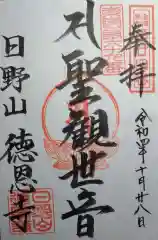 奉拝
令和四年十月廿八日
聖観世音
日野山
徳恩寺